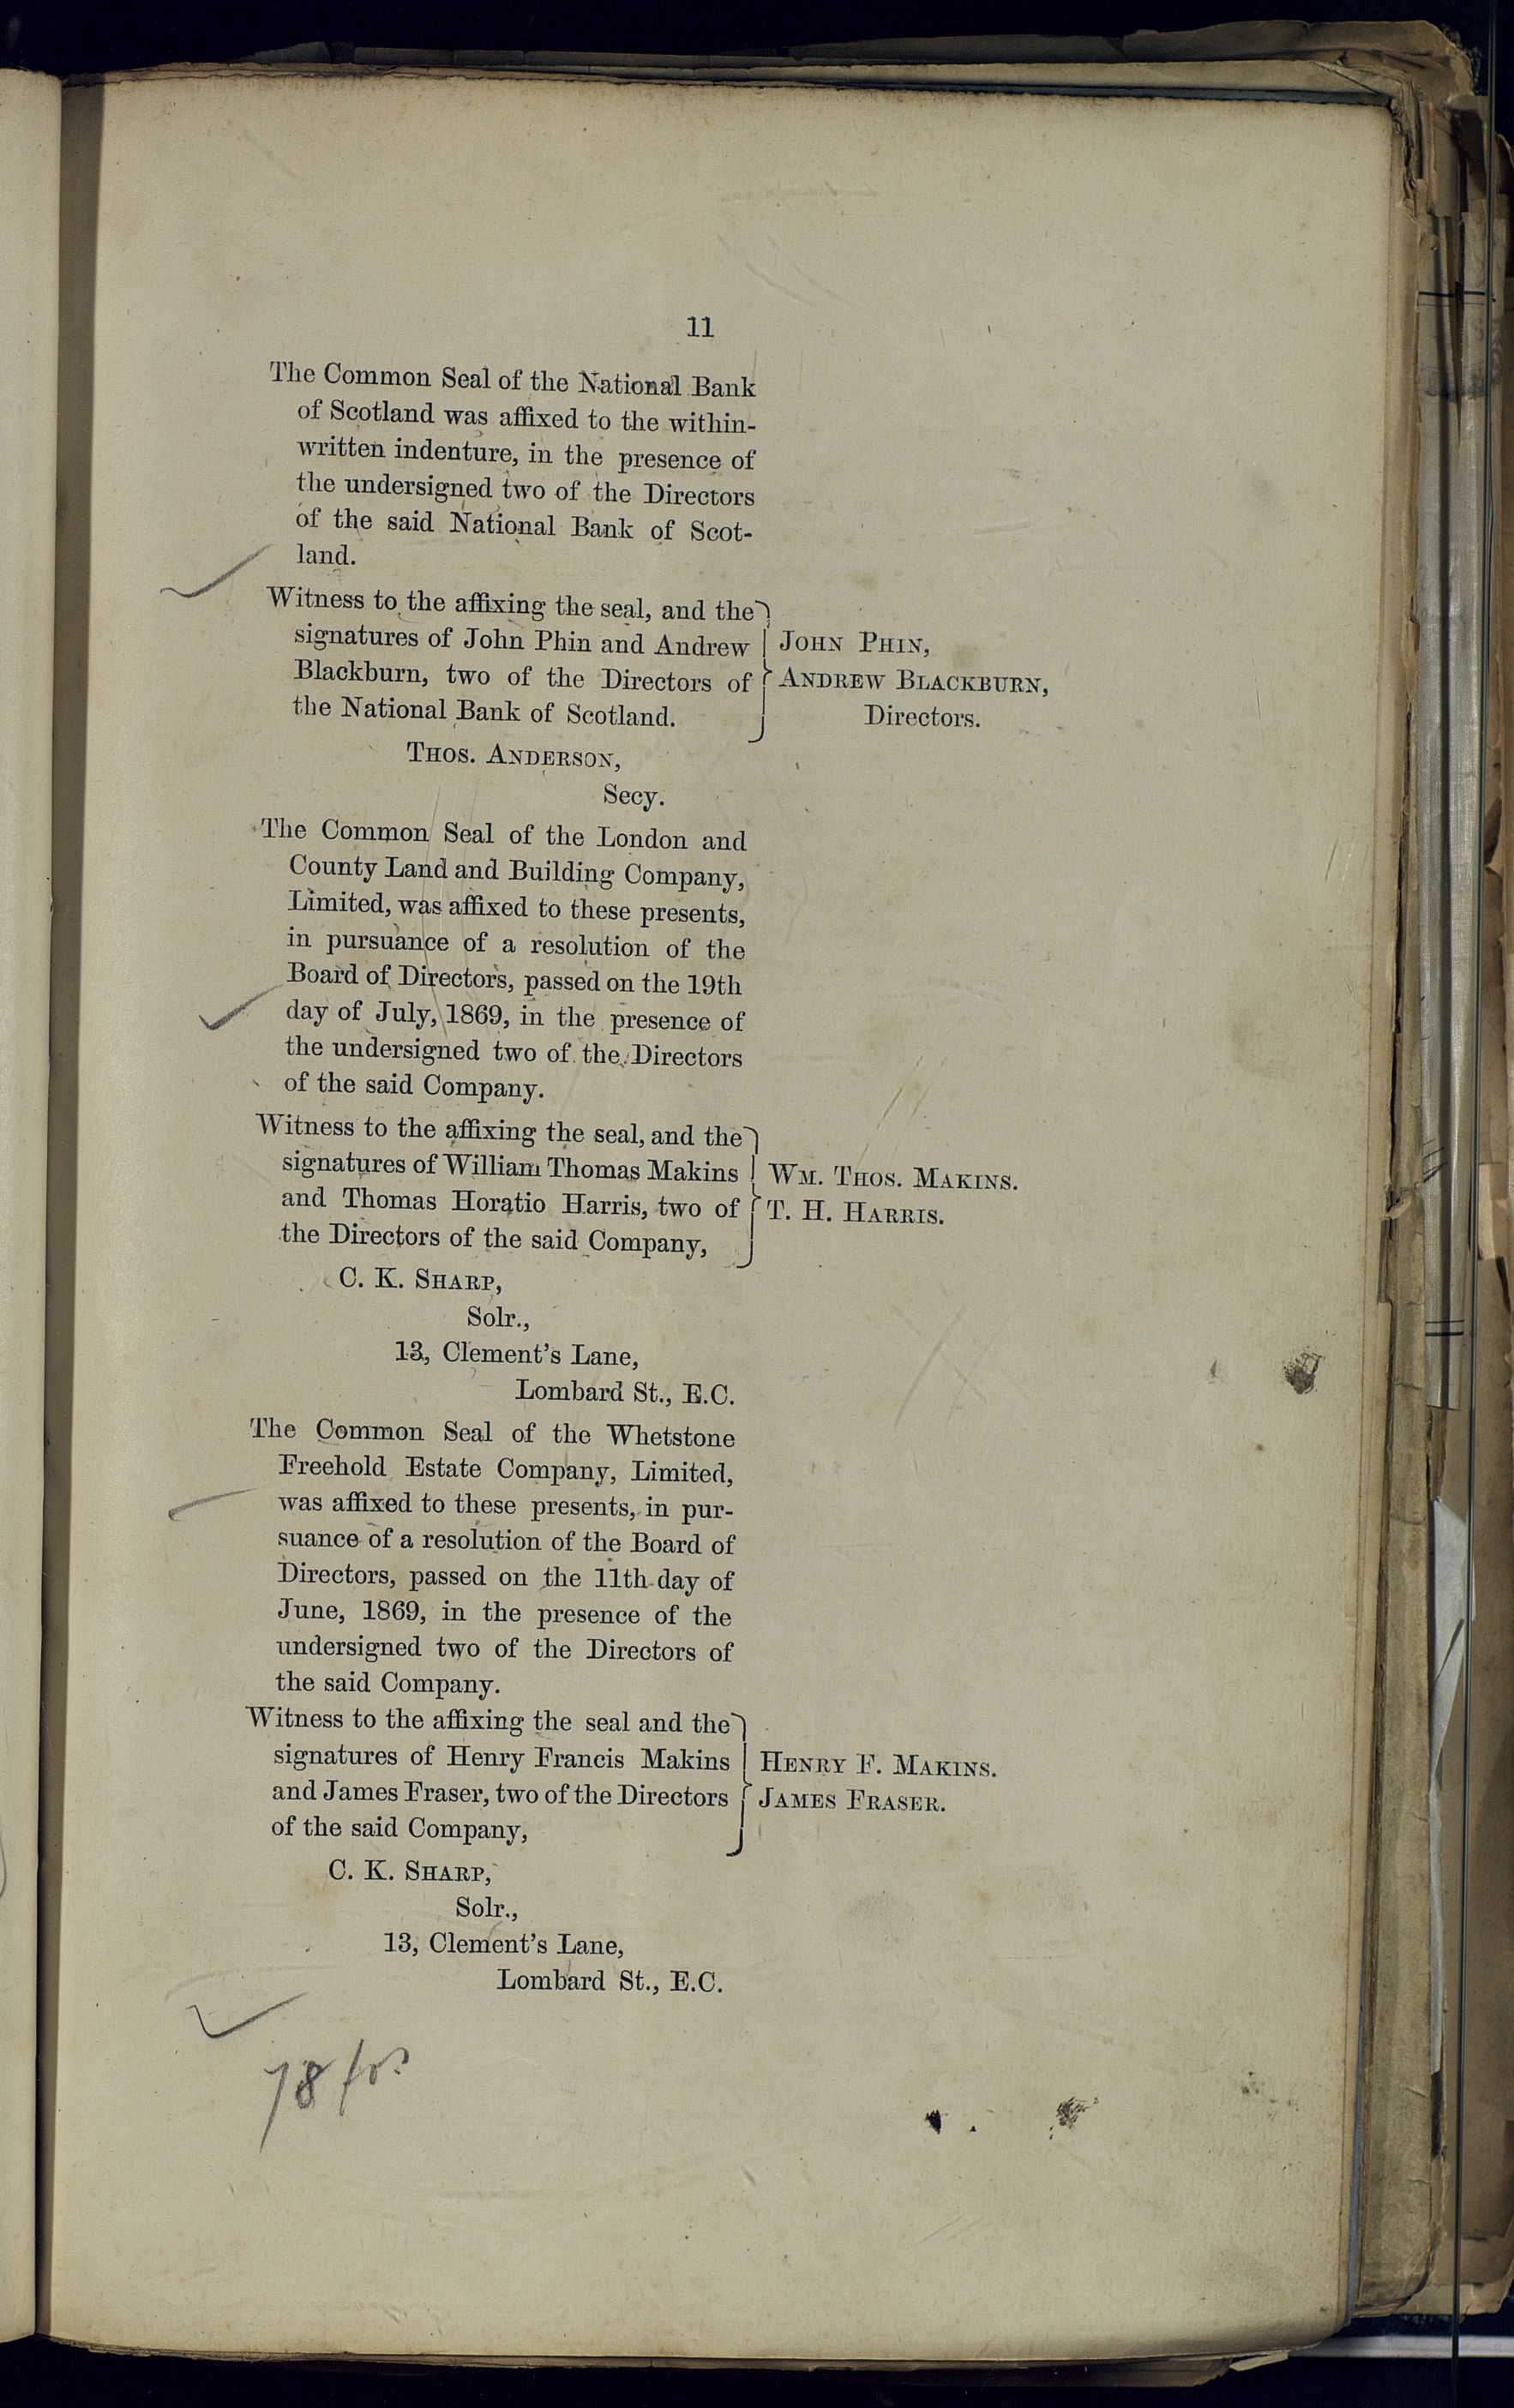 11
The Common Seal of the National Bank
of Scotland was affixed to the within-
written indenture, in the presence of
the undersigned two of the Directors
of the said National Bank of Scot-
land.
Witness to the affixing the seal, and the
signatures of John Phin and Andrew
Blackburn, two of the Directors of
the National Bank of Scotland.
JOHN PHIN,
ANDREW BLACKBURN,
Directors.
THOS. ANDERSON,
Secy.
The Common Seal of the London and
County Land and Building Company,
Limited, was affixed to these presents,
in pursuance of a resolution of the
Board of Directors, passed on the 19th
day of July, 1869, in the presence of
the undersigned two of the Directors
of the said Company.
Witness to the affixing the seal, and the
signatures of William Thomas Makins
and Thomas Horatio Harris, two of
the Directors of the said Company,
WM. THOS. MAKINS.
T. H. HARRIS.
C. K. SHARP,
Solr.,
13, Clement's Lane,
Lombard St., E.C.
The Common Seal of the Whetstone
Freehold Estate Company, Limited,
was affixed to these presents, in pur-
suance of a resolution of the Board of
Directors, passed on the 11th day of
June, 1869, in the presence of the
undersigned two of the Directors of
the said Company.
Witness to the affixing the seal and the
signatures of Henry Francis Makins
and James Fraser, two of the Directors
of the said Company,
HENRY F. MAKINS.
JAMES FRASER.
C. K. SHARP,
Solr.,
13, Clement's Lane,
Lombard St., E.C.
78